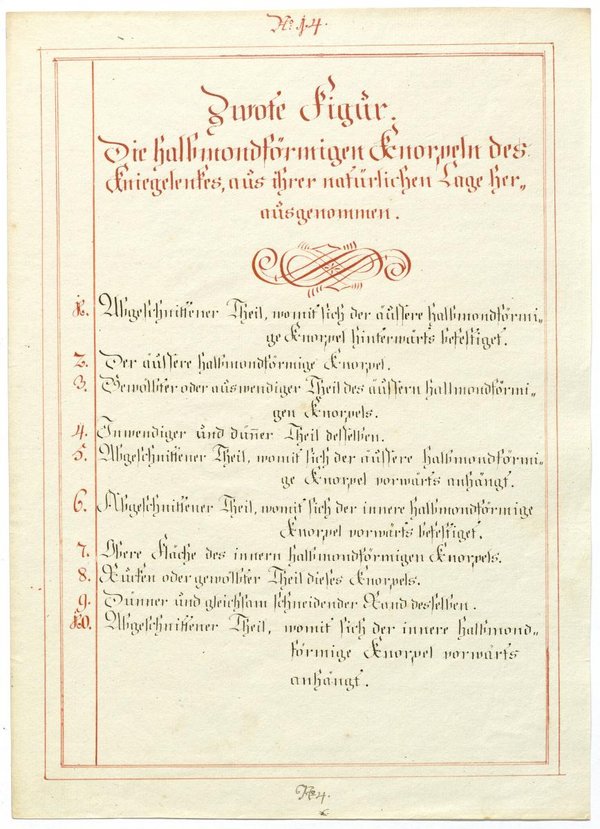 No. 14.
Zwote Figur.
Die halbmondförmigen Knorpeln des
Kniegelenkes, aus ihrer natürlichen Lage her„
ausgenommen.
1. Abgeschnittener Theil, womit sich der äussere halbmondförmi„
ge Knorpel hinterwärts befestiget.
2. Der äussere halbmondförmige Knorpel.
3. Gewölbter oder auswendiger Theil des äussern halbmondförmi„
gen Knorpels.
4. Inwendiger und dün̄er Theil desselben.
5. Abgeschnittener Theil, womit sich der äussere halbmondförmi„
ge Knorpel vorwärts anhängt.
6. Abgeschnittener Theil, womit sich der innere halbmondförmige
Knorpel vorwärts befestiget.
7. Obere Fläche des innern halbmondförmigen Knorpels.
8. Rücken oder gewölbter Theil dieses Knorpels.
9. Dünner und gleichsam schneidender Rand desselben.
10. Abgeschnittener Theil, womit sich der innere halbmond„
förmige Knorpel vorwärts
anhängt.
No 4.